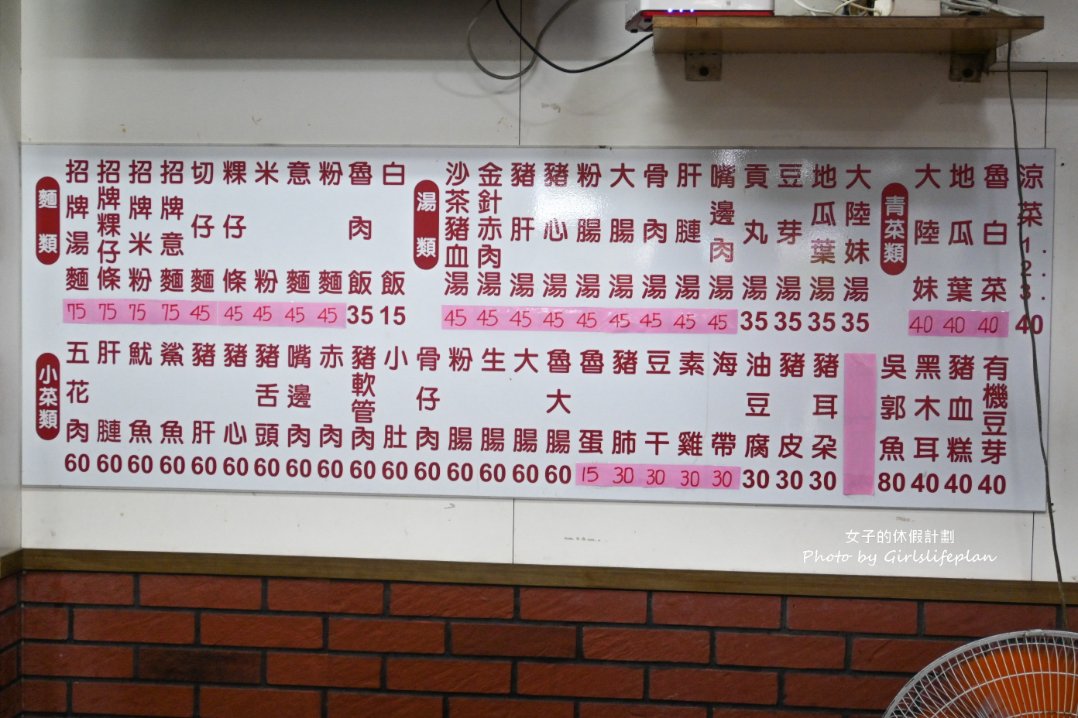 麵類
招牌湯麵 75
招牌粿仔條 75
招牌米粉 75
招牌意麵 75
切仔麵 45
粿仔條 45
米粉 45
意麵 45
粉麵 45
魯肉飯 35
白飯 15
湯類
沙茶豬血湯 45
金針赤肉湯 45
豬肝湯 45
豬心湯 45
粉腸湯 45
大腸湯 45
骨肉湯 45
肝腱湯 45
嘴邊肉湯 45
貢丸湯 35
豆芽湯 35
地瓜葉湯 35
大陸妹湯 35
青菜類
大陸妹 40
地瓜葉 40
魯白菜 40
涼菜1.2.3. 40
小菜類
五花肉 60
肝腱 60
魷魚 60
鯊魚 60
豬肝 60
豬心 60
豬舌頭 60
嘴邊肉 60
赤肉 60
豬軟管肉 60
小肚 60
骨仔肉 60
粉腸 60
生腸 60
大腸 60
魯大腸 60
魯蛋 15
豬肺 30
豆干 30
素雞 30
海帶 30
油豆腐 30
豬皮 30
豬耳朵 30
吳郭魚 80
黑木耳 40
豬血糕 40
有機豆芽 40
女子的休假計劃
Photo by Girlslifeplan